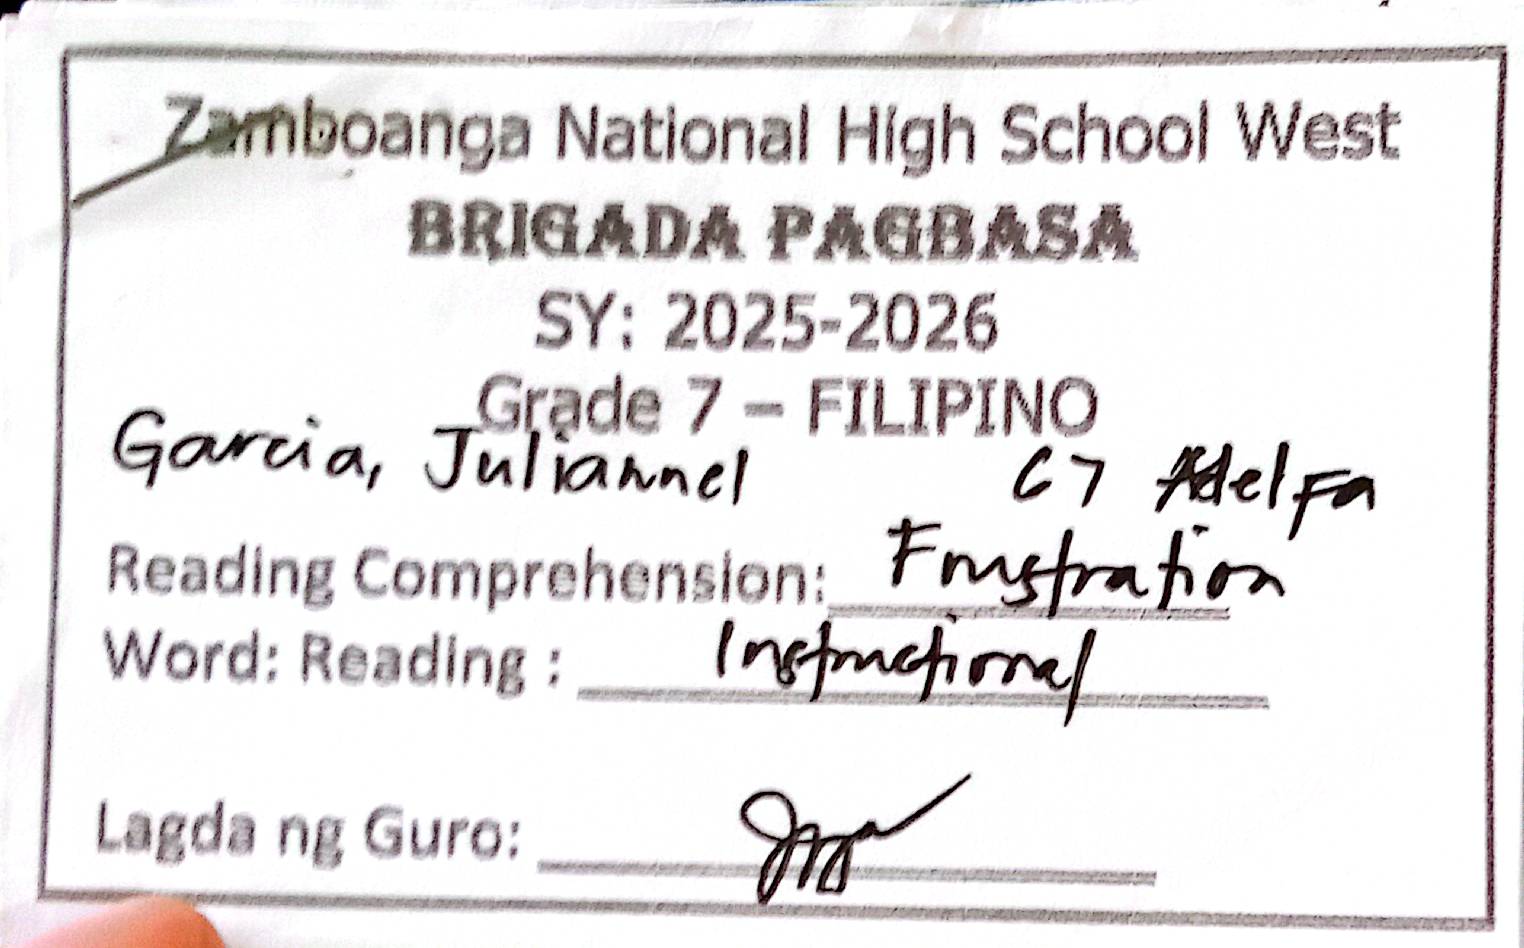 Zamboanga National High School West
BRIGADA PAGBASA
SY: 2025-2026
Grade 7 – FILIPINO
Garcia, Juliannel G7 Adelfa
Reading Comprehension: Frustration
Word: Reading : Instructional
Lagda ng Guro: